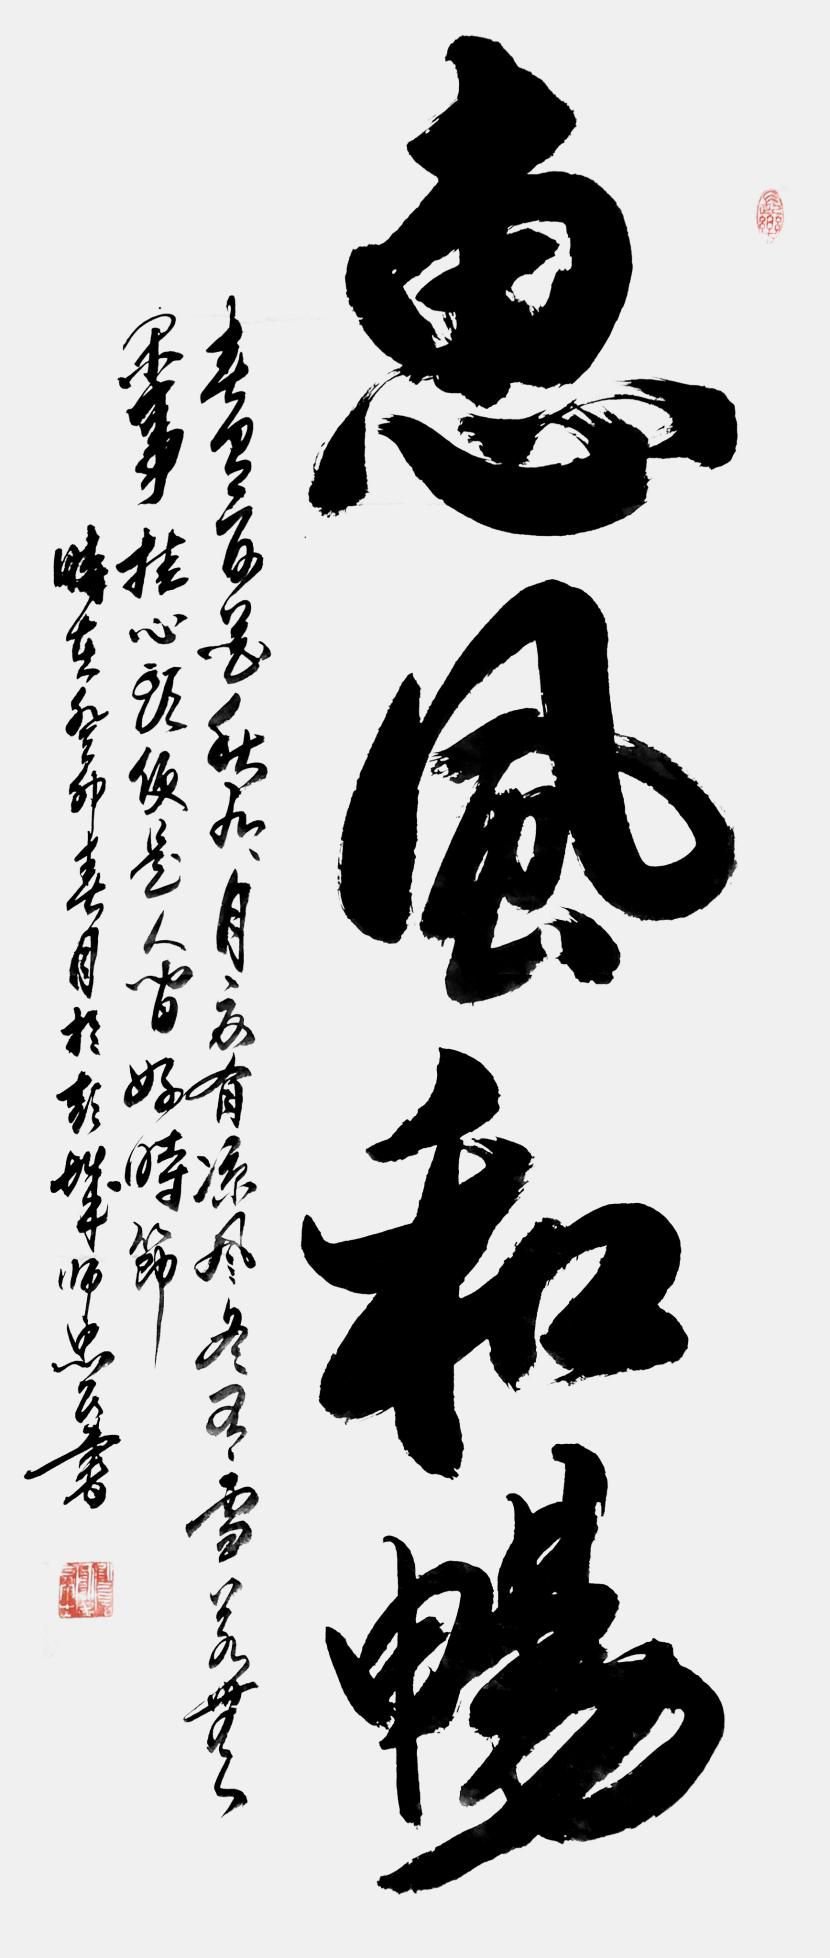 惠風和暢
春有百花秋有月夏有凉风冬有雪若無
閑事挂心頭便是人間好時節
時在癸卯春月於彭城师忠民書